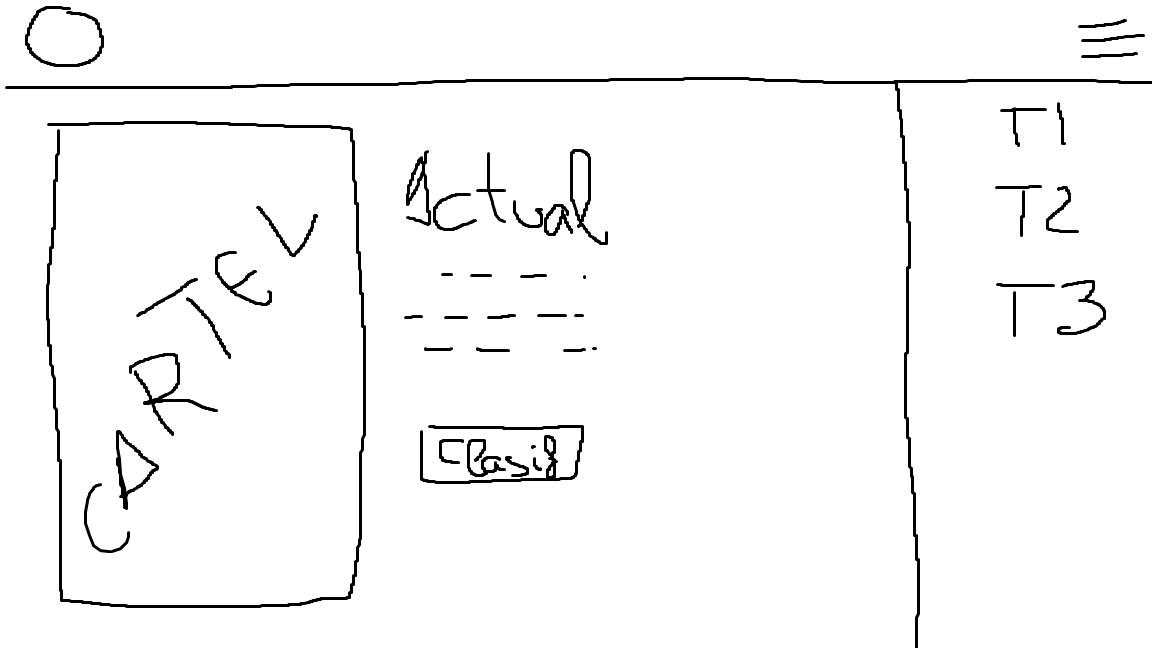 CARTEV
Actual
Clasif
T1
T2
T3